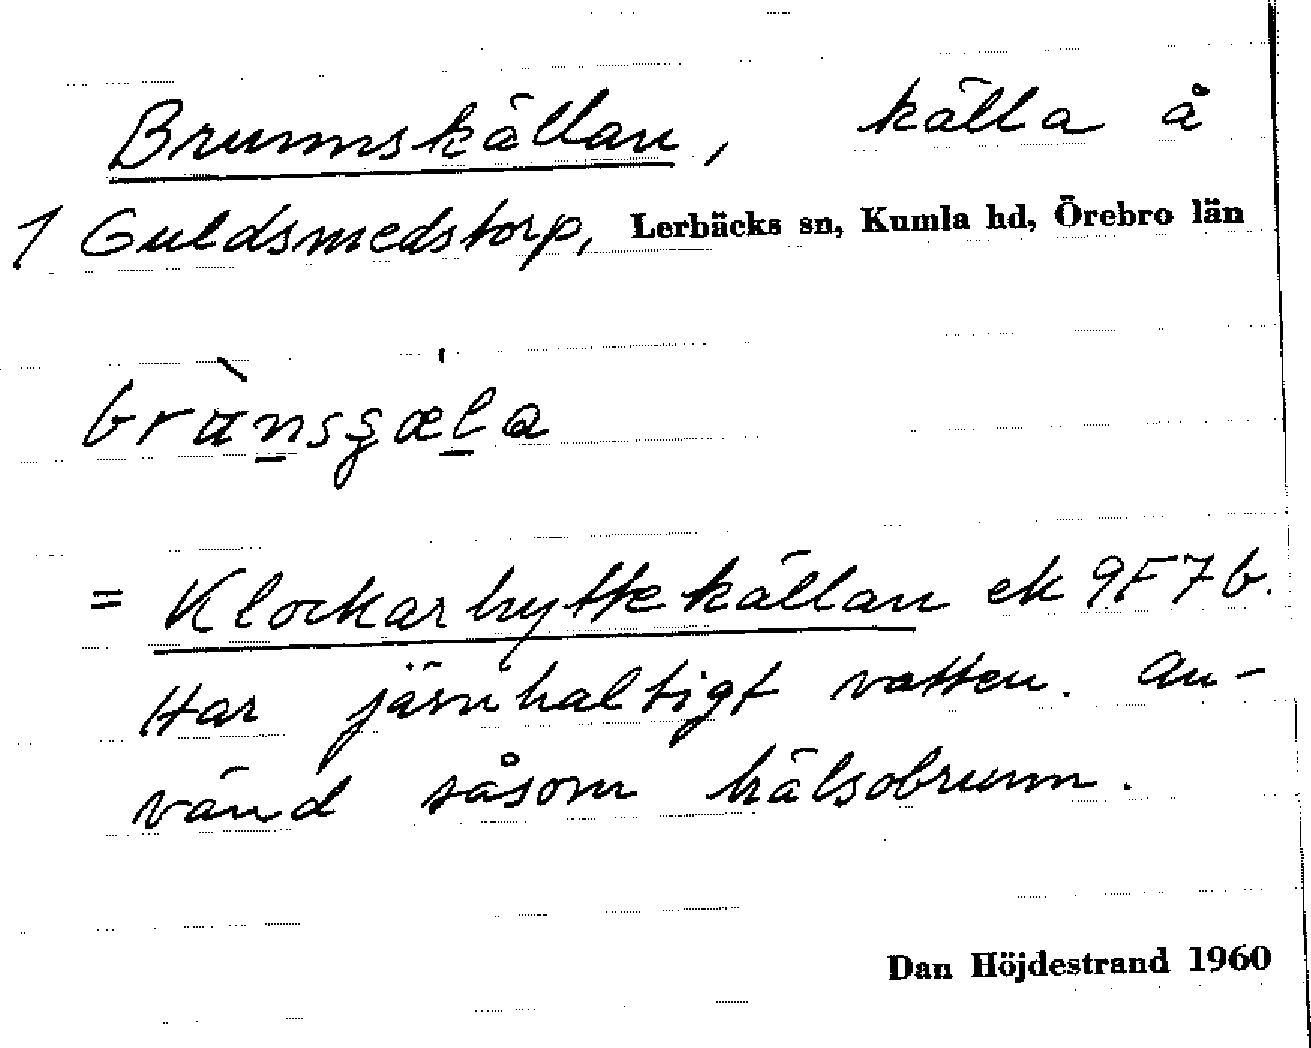 Brunnskällan, källa å
1 Guldsmedstorp, Lerbäcks sn, Kumla hd, Örebro län
= Klockarhyttekällan ek 9F7b.
Har järnhaltigt vatten. An-
vänd såsom hälsobrunn.
Dan Höjdestrand 1960